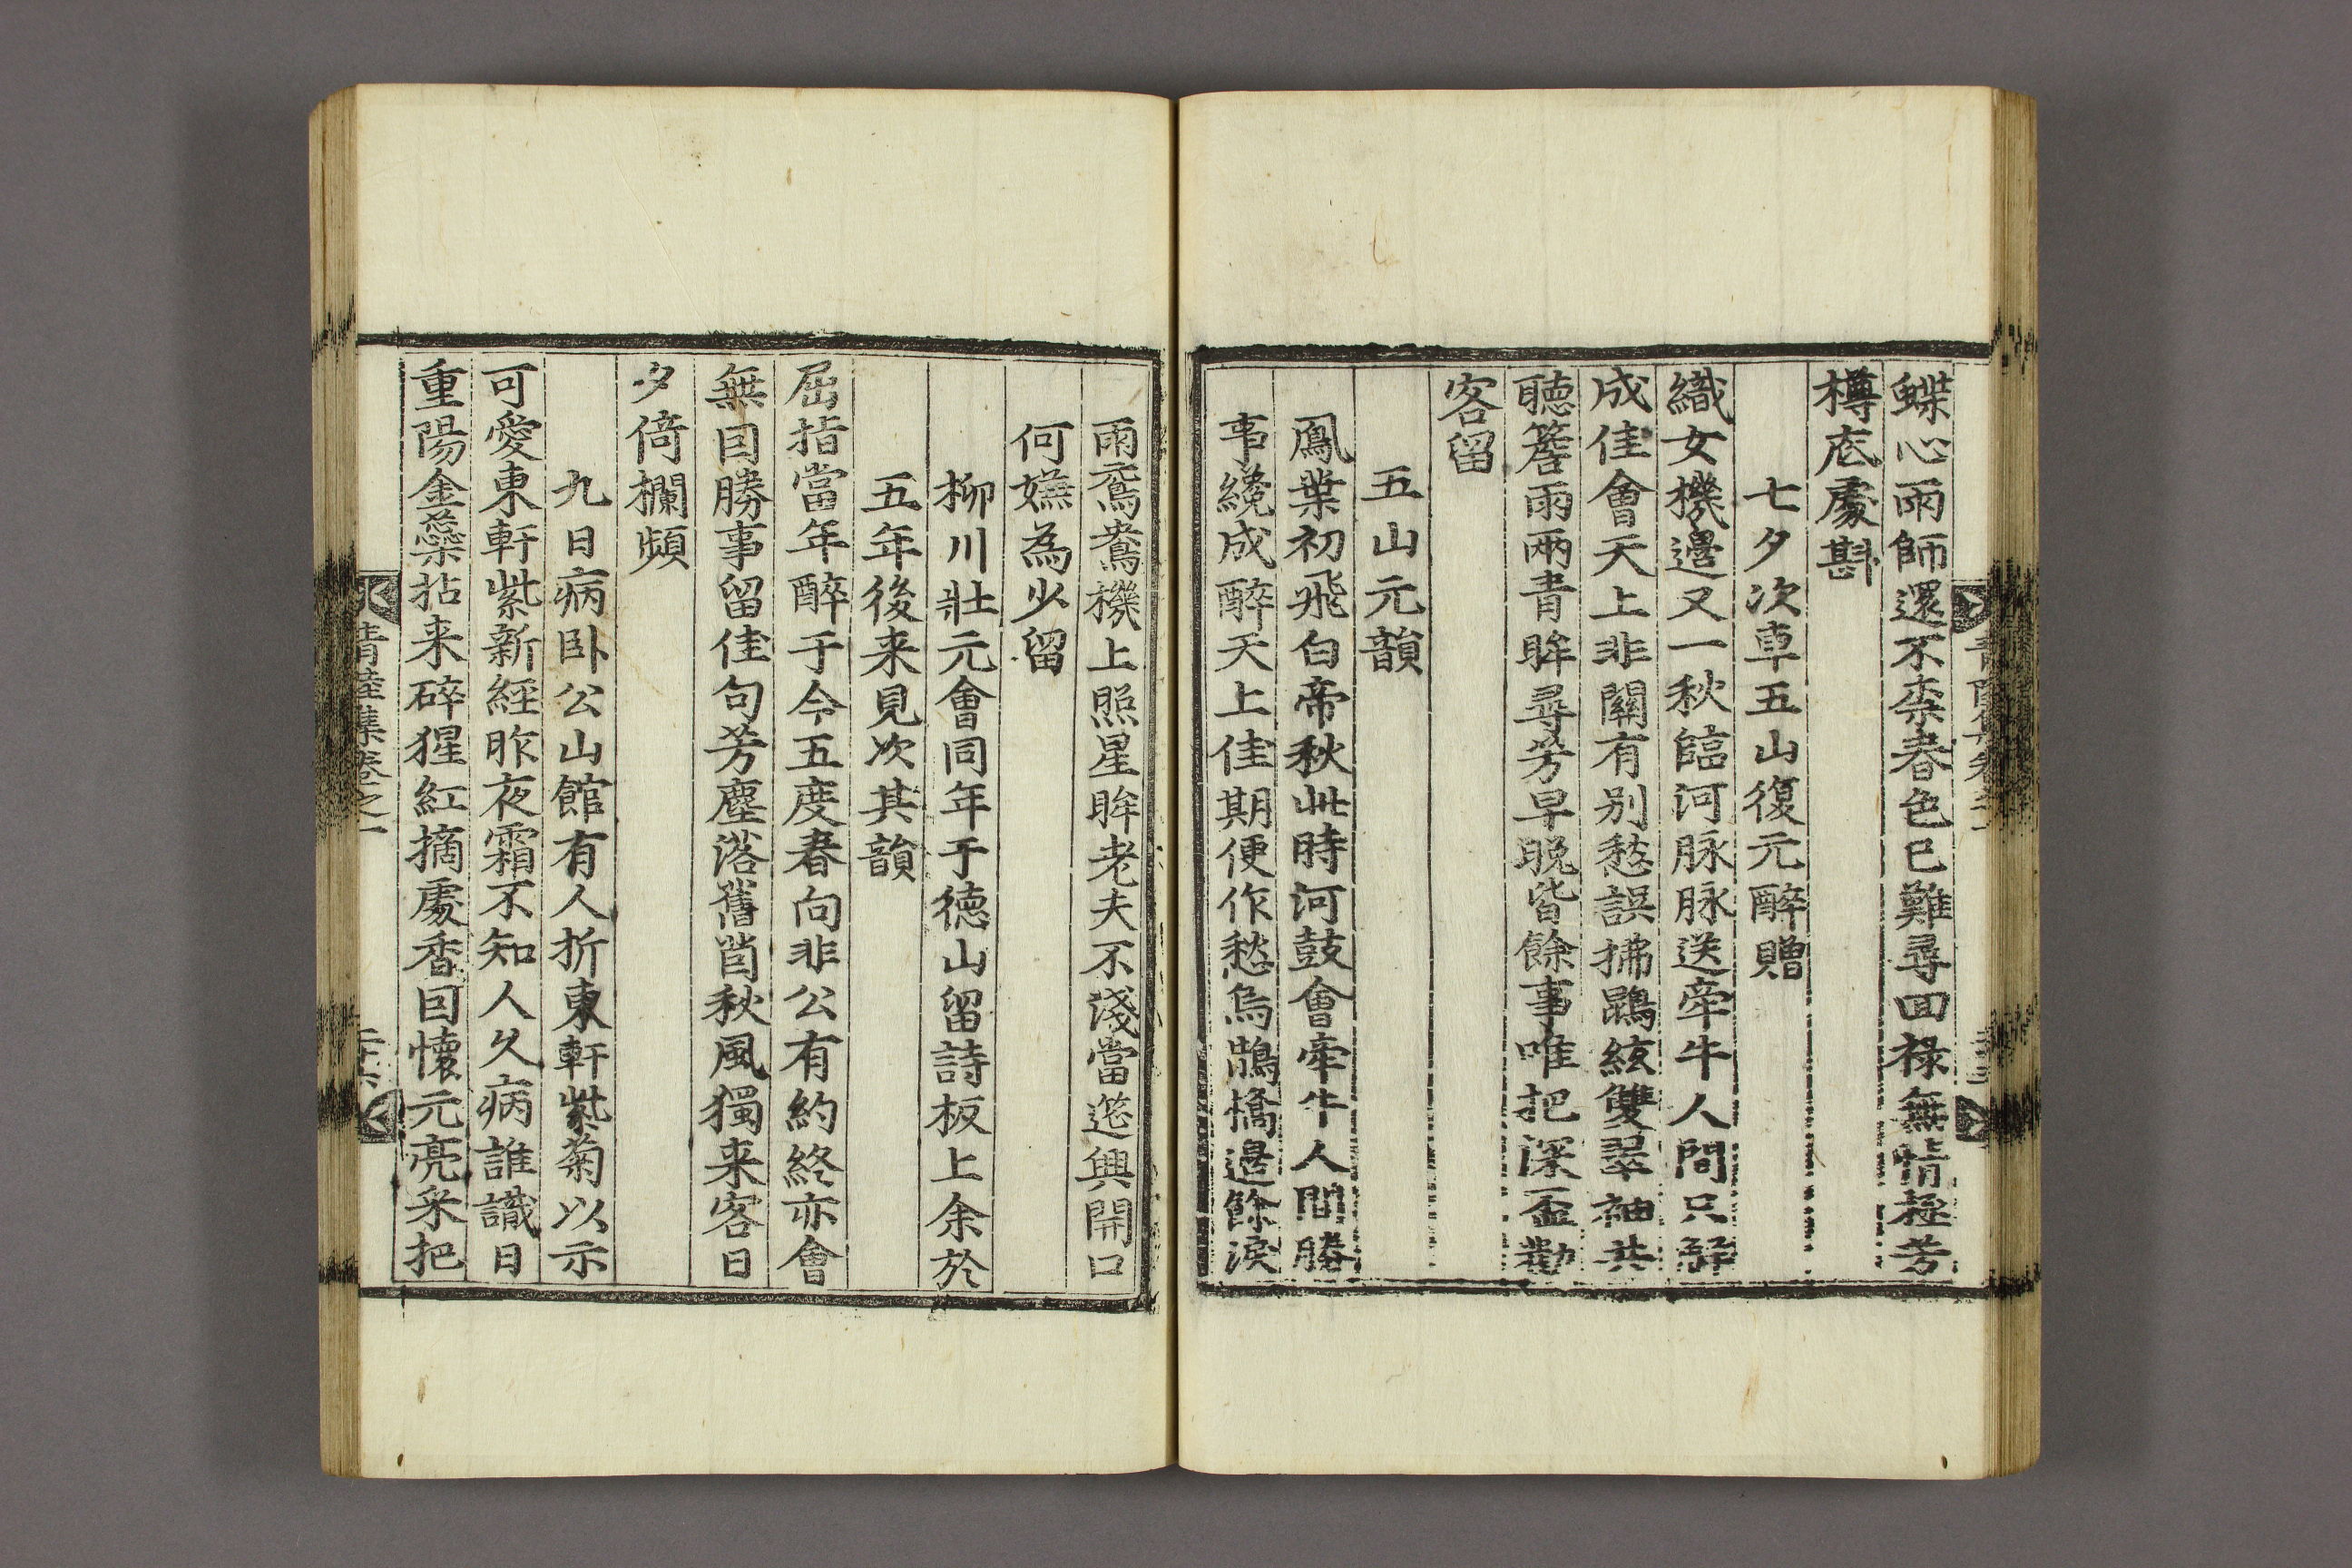 蝶心雨師還不柰春色已難尋回祿無情極芳
樽底處斟
七夕次車五山復元醉贈
織女機邊又一秋臨河脉脉送牽牛人間只解
成佳會天上非關有別愁誤拂鵾絃雙翠袖共
聽簷雨兩青眸尋芳早晚皆餘事唯把深盃勸
客留
五山元韻
鳳葉初飛白帝秋此時河鼓會牽牛人間勝
事纔成醉天上佳期便作愁烏鵲橋邊餘淚
雨鴛鴦機上照星眸老夫不淺當筵興開口
何嫌為少留
柳川壯元會同年于德山留詩板上余於
五年後来見次其韻
屈指當年醉于今五度春向非公有約終亦會
無因勝事留佳句芳塵浴舊茵秋風獨来客日
夕倚欄頻
九日病卧公山館有人折東軒紫菊以示
可愛東軒紫新經昨夜霜不知人久病誰識日
重陽金蘂拈来碎猩紅摘處香因懷元亮采把
青陸集卷之一